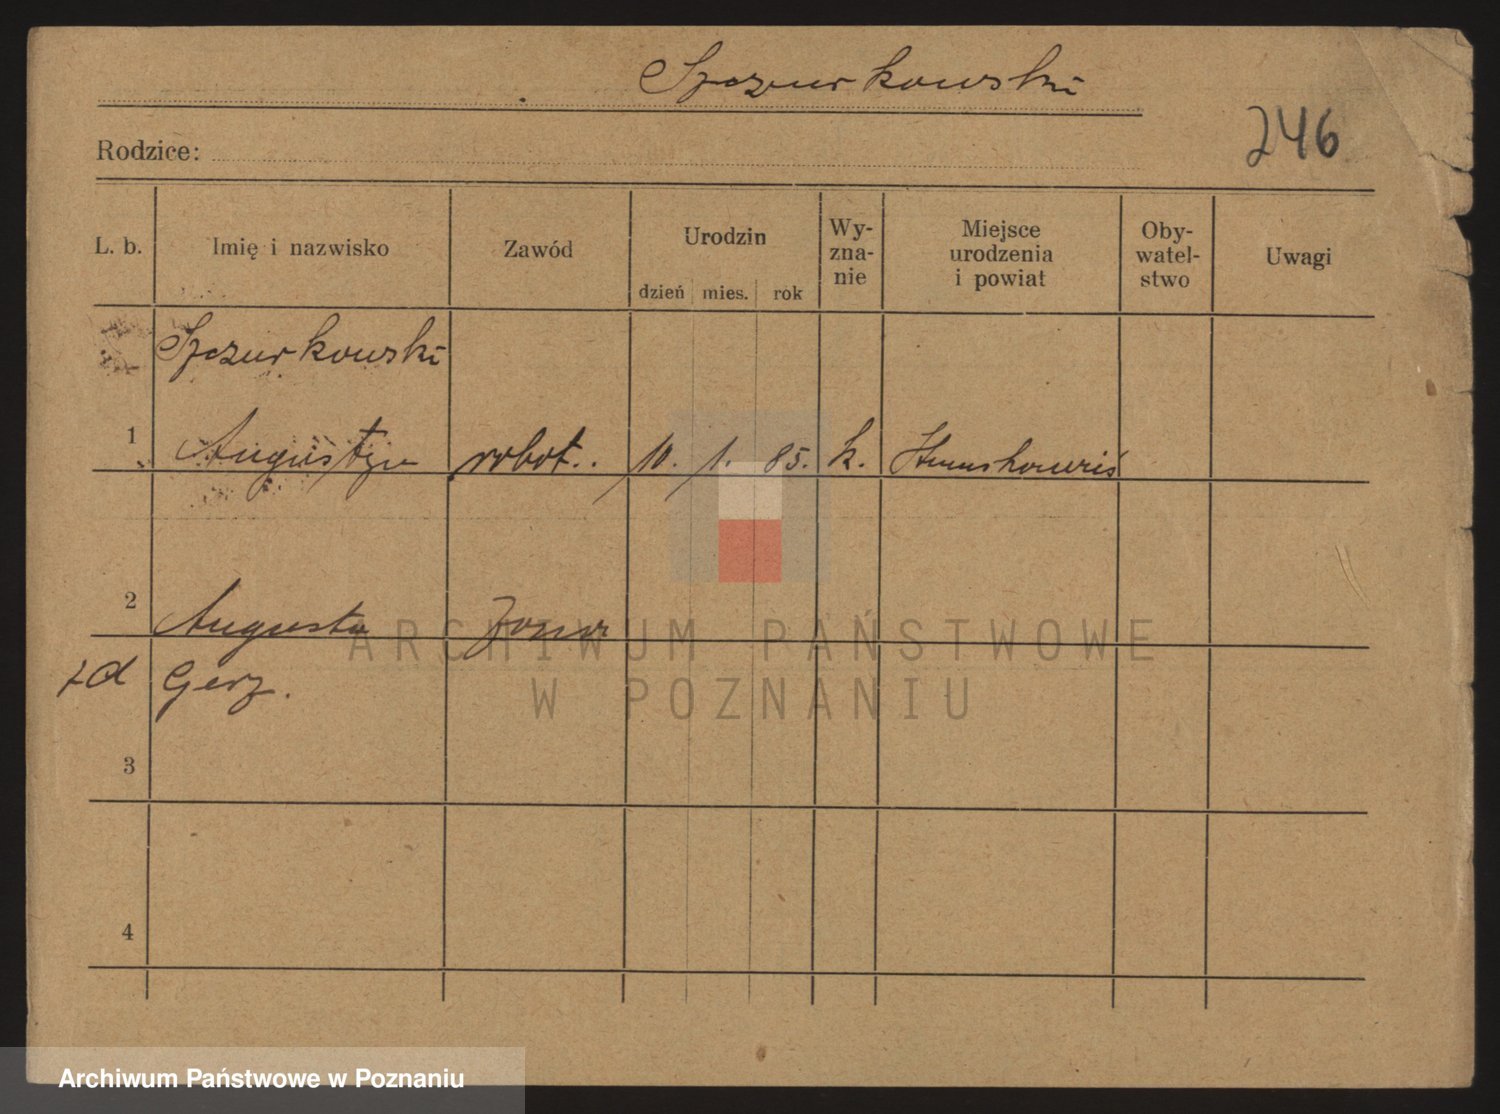 Szczurkowski
246
Rodzice:
L. b. Imię i nazwisko Zawód Urodzin dzień mies. rok Wy-zna-nie Miejsce urodzenia i powiat Oby-watel-stwo Uwagi
Szczurkowski
1 Augustyn robot.. 10. 1. 85. k.
2 Augusta żona
zd Gerz.
3
4
ARCHIWUM PAŃSTWOWE
W POZNANIU
Archiwum Państwowe w Poznaniu